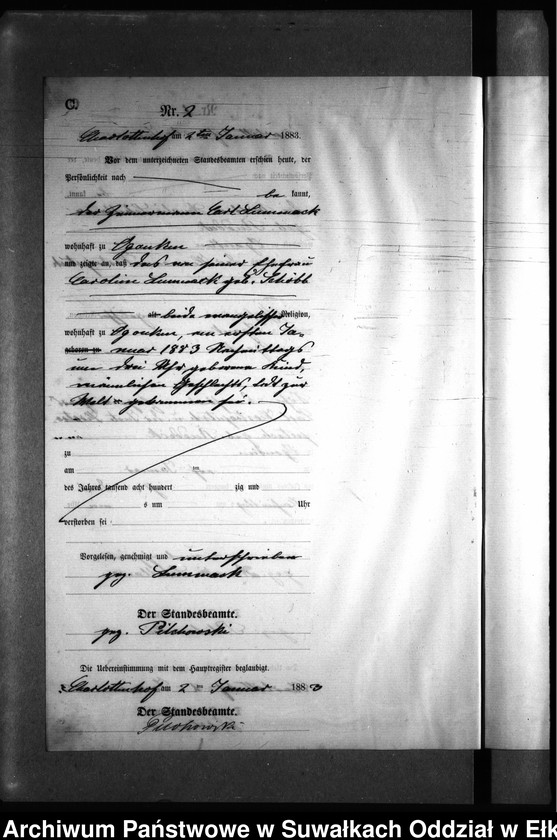 C.
Nr. 2
Charlottenhof am 2ten Januar 1883.
Vor dem unterzeichneten Standesbeamten erschien heute, der
Persönlichkeit nach
be kannt,
der Zimmermann Carl Lummack
wohnhaft zu Ogonken
und zeigte an, daß das von seiner Ehefrau
Caroline Lummack geb. Schöbb
beide evangelischer Religion,
wohnhaft zu Ogonken, am ersten Ja-
geboren zu nuar 1883 Nachmittags
um drei Uhr geborene Kind,
männlichen Geschlechts, todt zur
Welt gekommen sei.
zu
am ten
des Jahres tausend acht hundert zig und
s um Uhr
verstorben sei
Vorgelesen, genehmigt und unterschrieben
gez. Lummack
Der Standesbeamte.
gez. Pilchowski
Die Uebereinstimmung mit dem Hauptregister beglaubigt.
Charlottenhof am 2 ten Januar 1883
Der Standesbeamte.
Pilchowski
Archiwum Państwowe w Suwałkach Oddział w Ełk